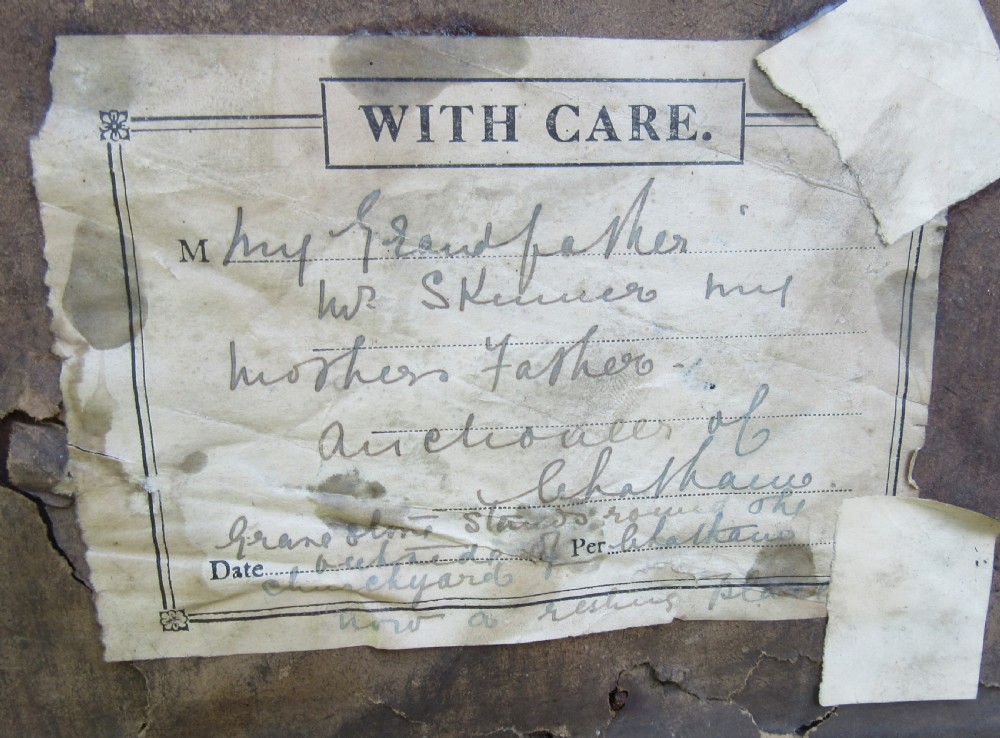 WITH CARE.
M my Grandfather
Mr Skinner my
Mothers Father.
Auctioneer of
Chatham.
Grave stone stands round the
outside of Per Chatham
Date churchyard
now a resting place